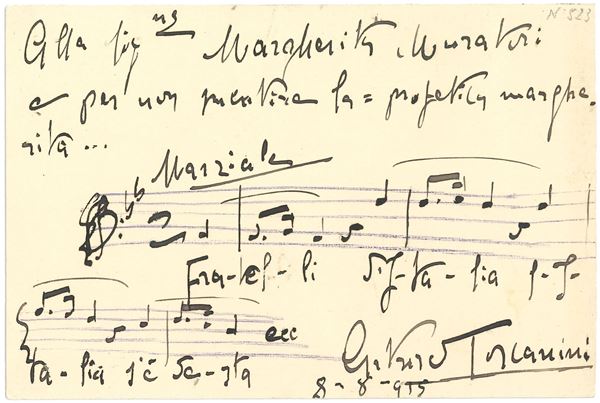 N° 523
Alla sig.na Margherita Muratori
e per non mentire la = profetica marghe-
rita ...
Marziale
Fra-tel-li d'I-ta-lia l-I-
ta-lia s'è de-sta
ecc
Arturo Toscanini
8-8-935